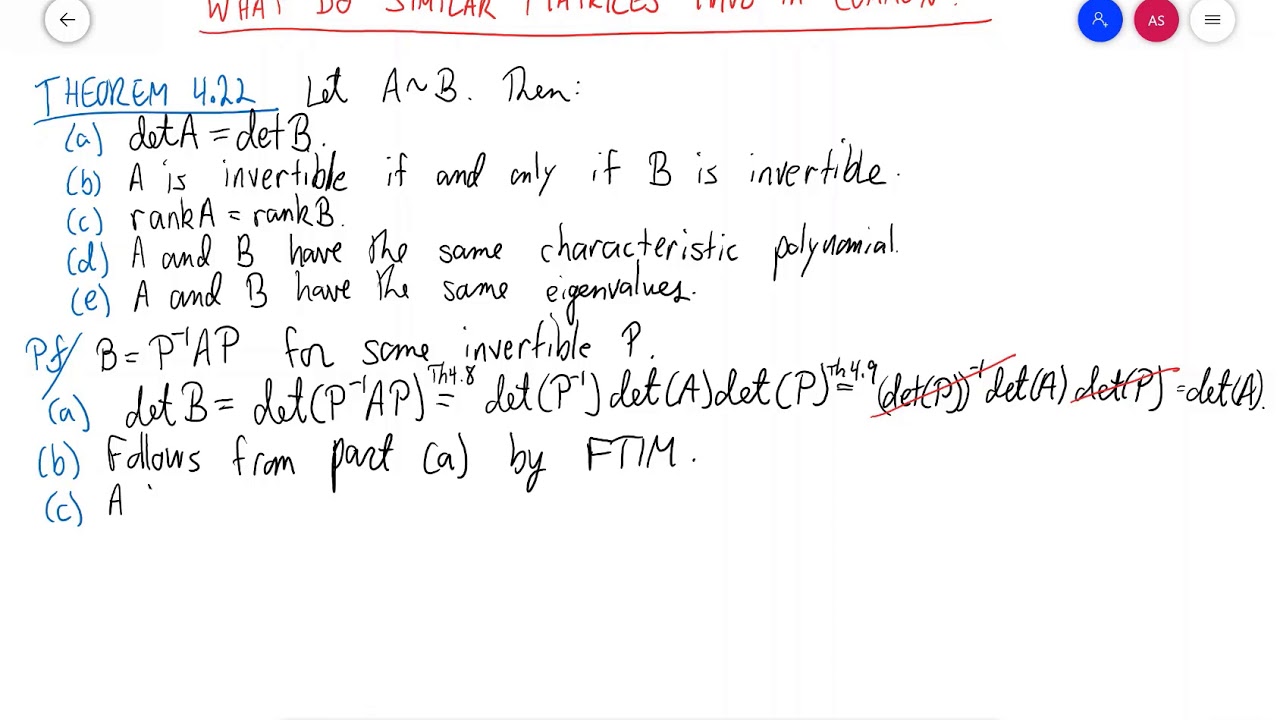 WHAT DO SIMILAR MATRICES HAVE IN COMMON?
AS
THEOREM 4.22 Let A~B. Then:
(a) detA = detB.
(b) A is invertible if and only if B is invertible.
(c) rankA = rankB.
(d) A and B have the same characteristic polynomial.
(e) A and B have the same eigenvalues.
Pf/ B = P⁻¹AP for some invertible P.
(a) detB = det(P⁻¹AP) =^{Th4.8} det(P⁻¹)det(A)det(P) =^{Th4.9} (det(P))⁻¹det(A)det(P) = det(A).
(b) Follows from part (a) by FTIM.
(c) A